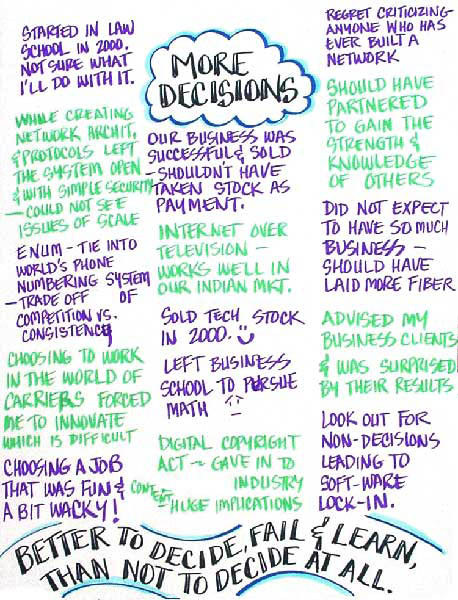 MORE
DECISIONS
STARTED IN LAW
SCHOOL IN 2000.
NOT SURE WHAT
I'LL DO WITH IT.
WHILE CREATING
NETWORK ARCHIT.
& PROTOCOLS LEFT
THE SYSTEM OPEN
& WITH SIMPLE SECURITY
— COULD NOT SEE
ISSUES OF SCALE
ENUM - TIE INTO
WORLD'S PHONE
NUMBERING SYSTEM
— TRADE OFF OF
COMPETITION VS.
CONSISTENCY
CHOOSING TO WORK
IN THE WORLD OF
CARRIERS FORCED
ME TO INNOVATE
WHICH IS DIFFICULT
CHOOSING A JOB
THAT WAS FUN &
A BIT WACKY!
OUR BUSINESS WAS
SUCCESSFUL & SOLD
— SHOULDN'T HAVE
TAKEN STOCK AS
PAYMENT.
INTERNET OVER
TELEVISION —
WORKS WELL IN
OUR INDIAN MKT.
SOLD TECH STOCK
IN 2000.
LEFT BUSINESS
SCHOOL TO PURSUE
MATH
DIGITAL COPYRIGHT
ACT — GAVE IN TO
CONTENT INDUSTRY
— HUGE IMPLICATIONS
REGRET CRITICIZING
ANYONE WHO HAS
EVER BUILT A
NETWORK
SHOULD HAVE
PARTNERED
TO GAIN THE
STRENGTH &
KNOWLEDGE
OF OTHERS
DID NOT EXPECT
TO HAVE SO MUCH
BUSINESS —
SHOULD HAVE
LAID MORE FIBER
ADVISED MY
BUSINESS CLIENTS
& WAS SURPRISED
BY THEIR RESULTS
LOOK OUT FOR
NON-DECISIONS
LEADING TO
SOFT-WARE
LOCK-IN.
BETTER TO DECIDE, FAIL & LEARN,
THAN NOT TO DECIDE AT ALL.